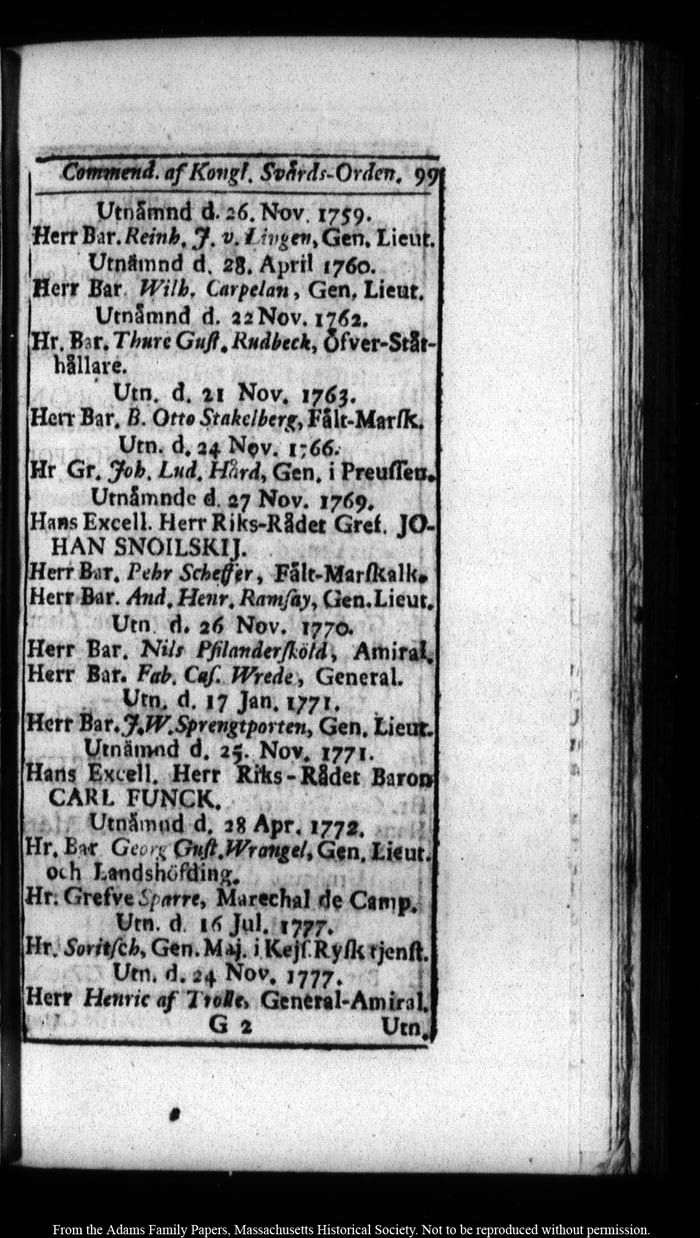 Commend. af Kongl. Svårds-Orden. 99
Utnåmnd d. 26. Nov. 1759.
Herr Bar. Reinh. J. v. Lingen, Gen. Lieut.
Utnåmnd d. 28. April 1760.
Herr Bar. Wilh. Carpelan, Gen. Lieut.
Utnåmnd d. 22 Nov. 1762.
Hr. Bar. Thure Guſt. Rudbeck, Öfver-Ståt-
hållare.
Utn. d. 21 Nov. 1763.
Herr Bar. B. Otto Stakelberg, Fålt-Marſk.
Utn. d. 24 Nov. 1766.
Hr Gr. Joh. Lud. Hård, Gen. i Preuſſen.
Utnåmnde d. 27 Nov. 1769.
Hans Excell. Herr Riks-Rådet Gref. JO-
HAN SNOILSKIJ.
Herr Bar. Pehr Scheffer, Fålt-Marſkalk.
Herr Bar. And. Henr. Ramſay, Gen. Lieut.
Utn. d. 26 Nov. 1770.
Herr Bar. Nils Pſilanderſköld, Amiral.
Herr Bar. Fab. Caſ. Wrede, General.
Utn. d. 17 Jan. 1771.
Herr Bar. J. W. Sprengtporten, Gen. Lieut.
Utnämnd d. 25. Nov. 1771.
Hans Excell. Herr Riks-Rådet Baron
CARL FUNCK.
Utnåmnd d. 28 Apr. 1772.
Hr. Bar. Georg Guſt. Wrangel, Gen. Lieut.
och Landshöfding.
Hr. Grefve Sparre, Marechal de Camp.
Utn. d. 16 Jul. 1777.
Hr. Soritſch, Gen. Maj. i Kejſ. Ryſk tjenſt.
Utn. d. 24 Nov. 1777.
Herr Henric af Trolle, General-Amiral.
G 2 Utn.
From the Adams Family Papers, Massachusetts Historical Society. Not to be reproduced without permission.